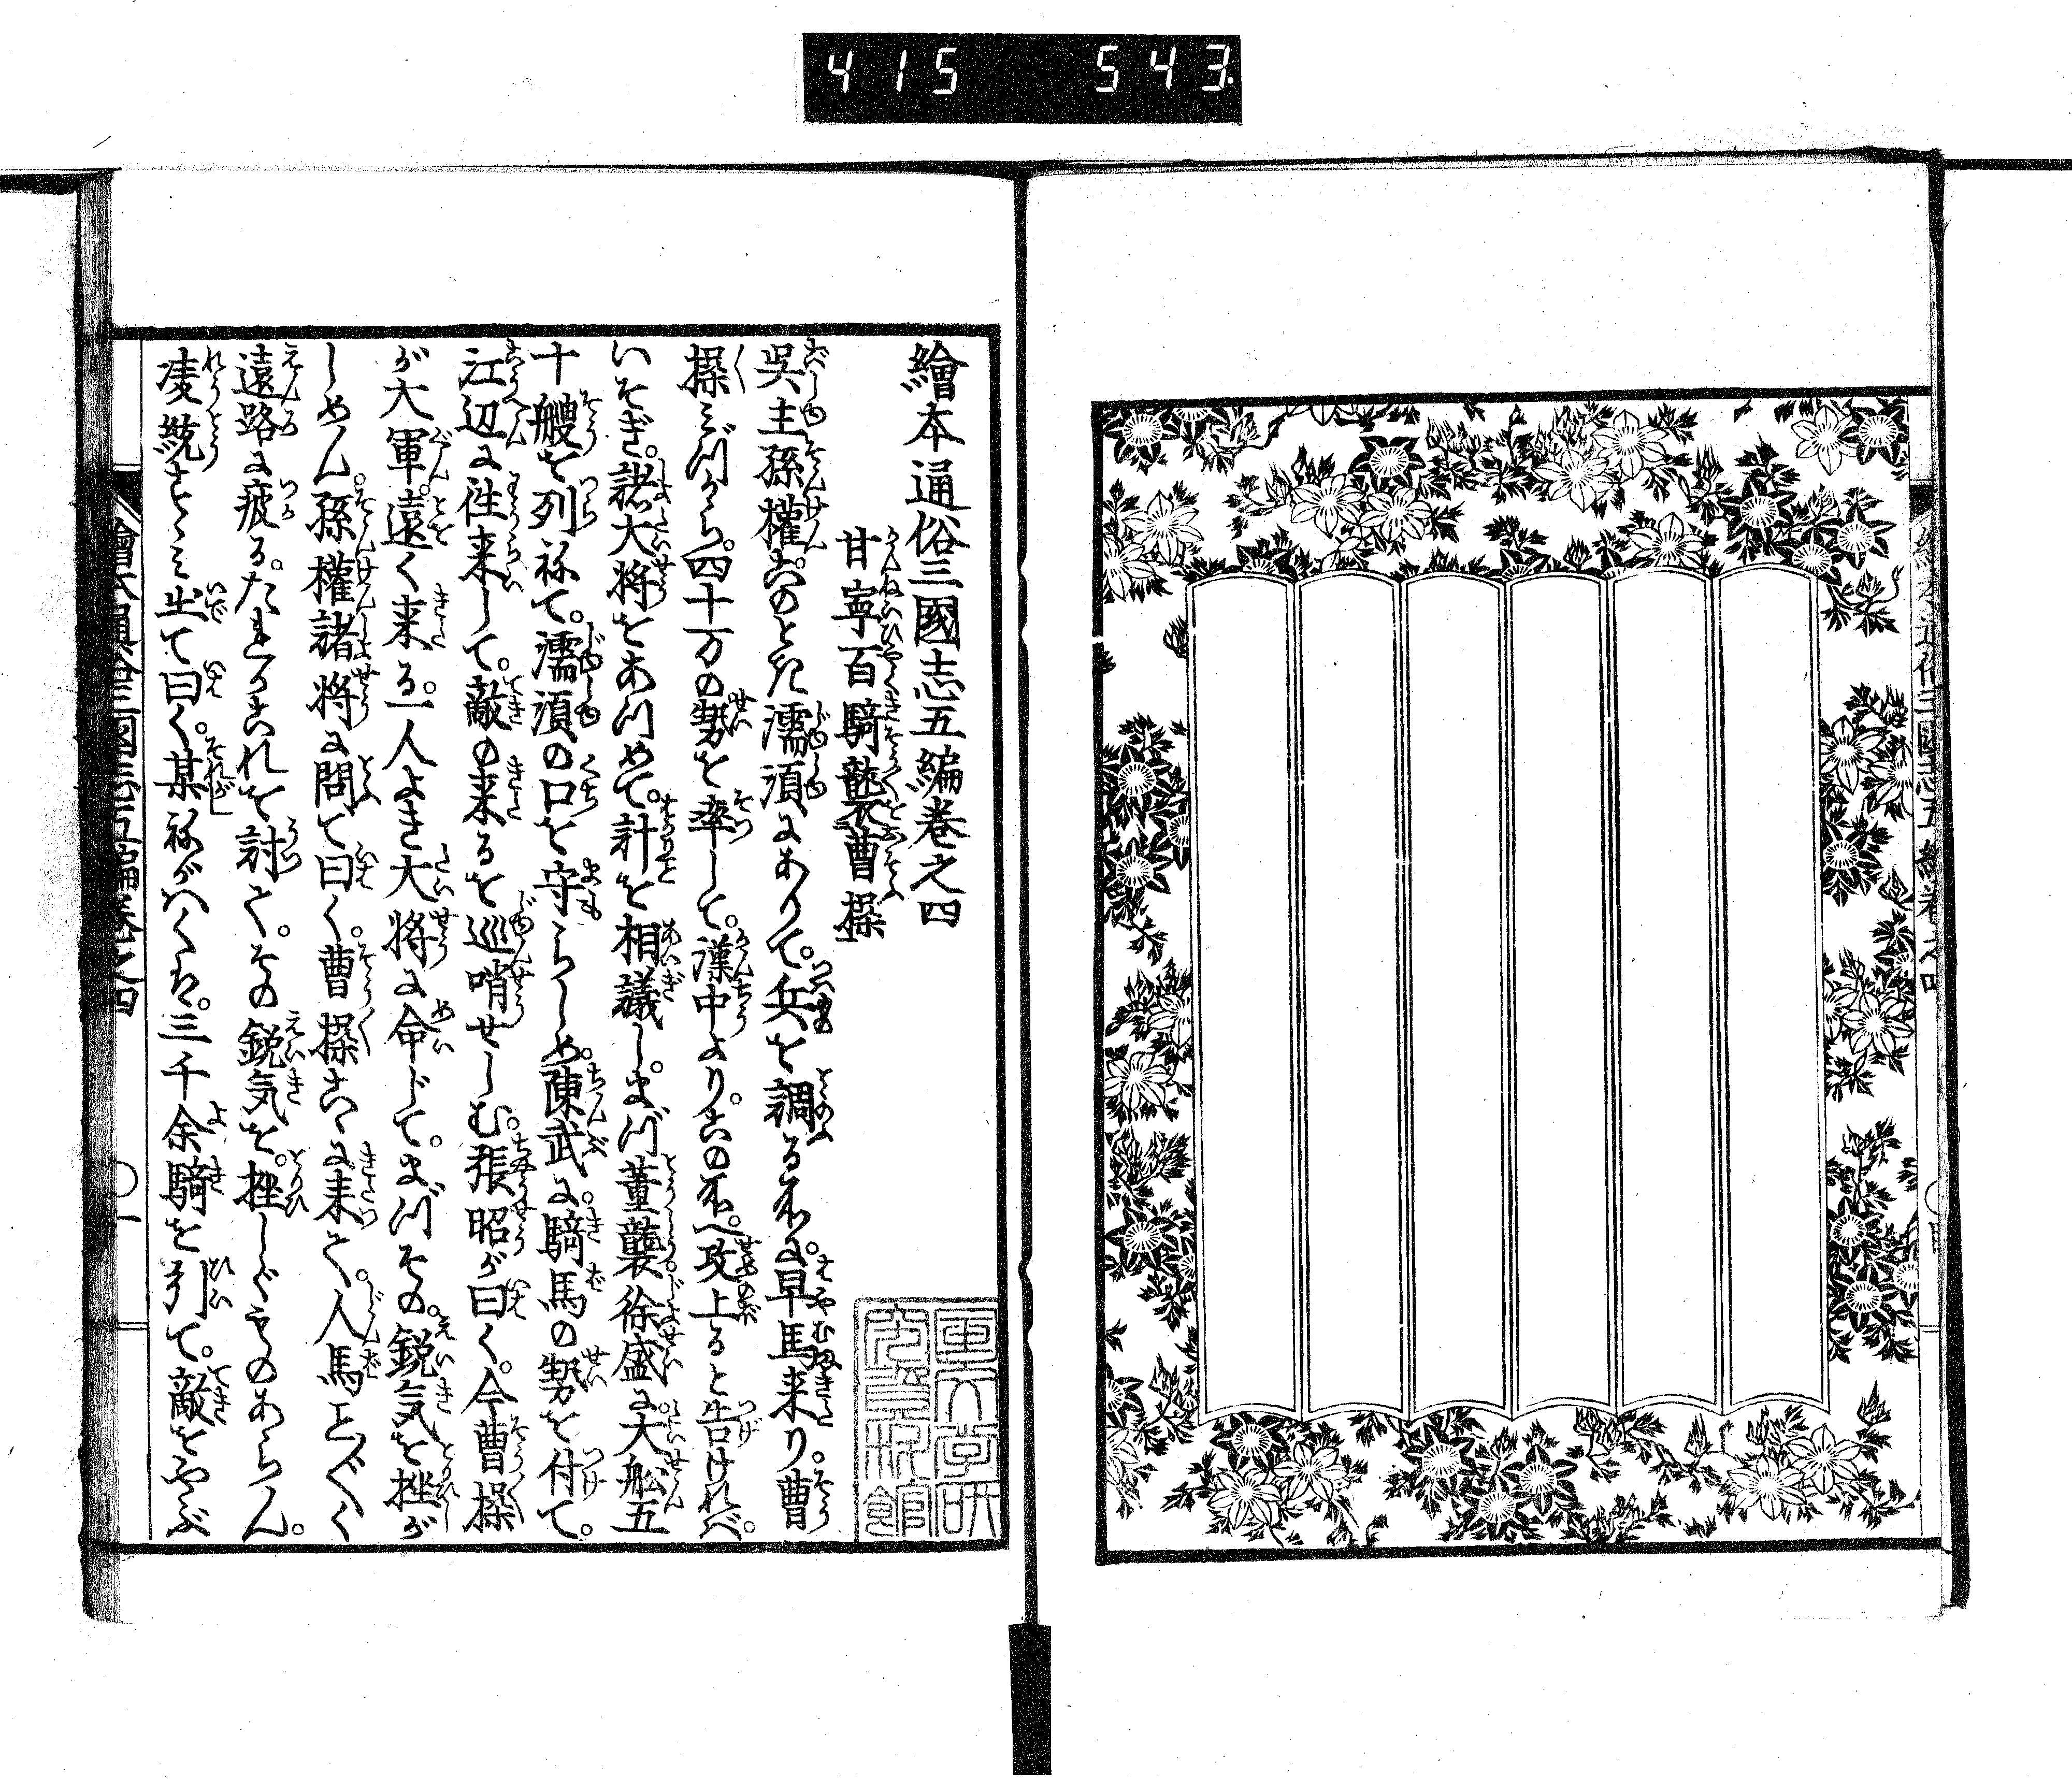 415 543
繪本通俗三國志五編卷之四
甘寧百騎襲曹操
呉主孫權このとき濡須にありて。兵を調る所に。早馬来り。曹
操みづから。四十万の勢を率して。漢中より。この所へ攻上ると告けれバ。
いそぎ。諸大将をあつめて。計を相議し。まづ董襲徐盛に。大舩五
十艘を列ねて。濡須の口を守らしめ。陳武に。騎馬の勢を付て。
江辺に往来して。敵の来るを巡哨せしむ。張昭が曰く。今曹操
が大軍。遠く来る。一人よき大将に命じて。まづその。鋭気を挫が
しめん。孫權諸将に問て曰く。曹操こゝに来つて。人馬こと〴〵く
遠路に疲る。たれかこれを討つて。その鋭気を。挫しぐものあらん。
凌統すゝミ出て曰く。某ねがハくハ。三千余騎を引て。敵をやぶ
繪本通俗三國志五編卷之四 〇一